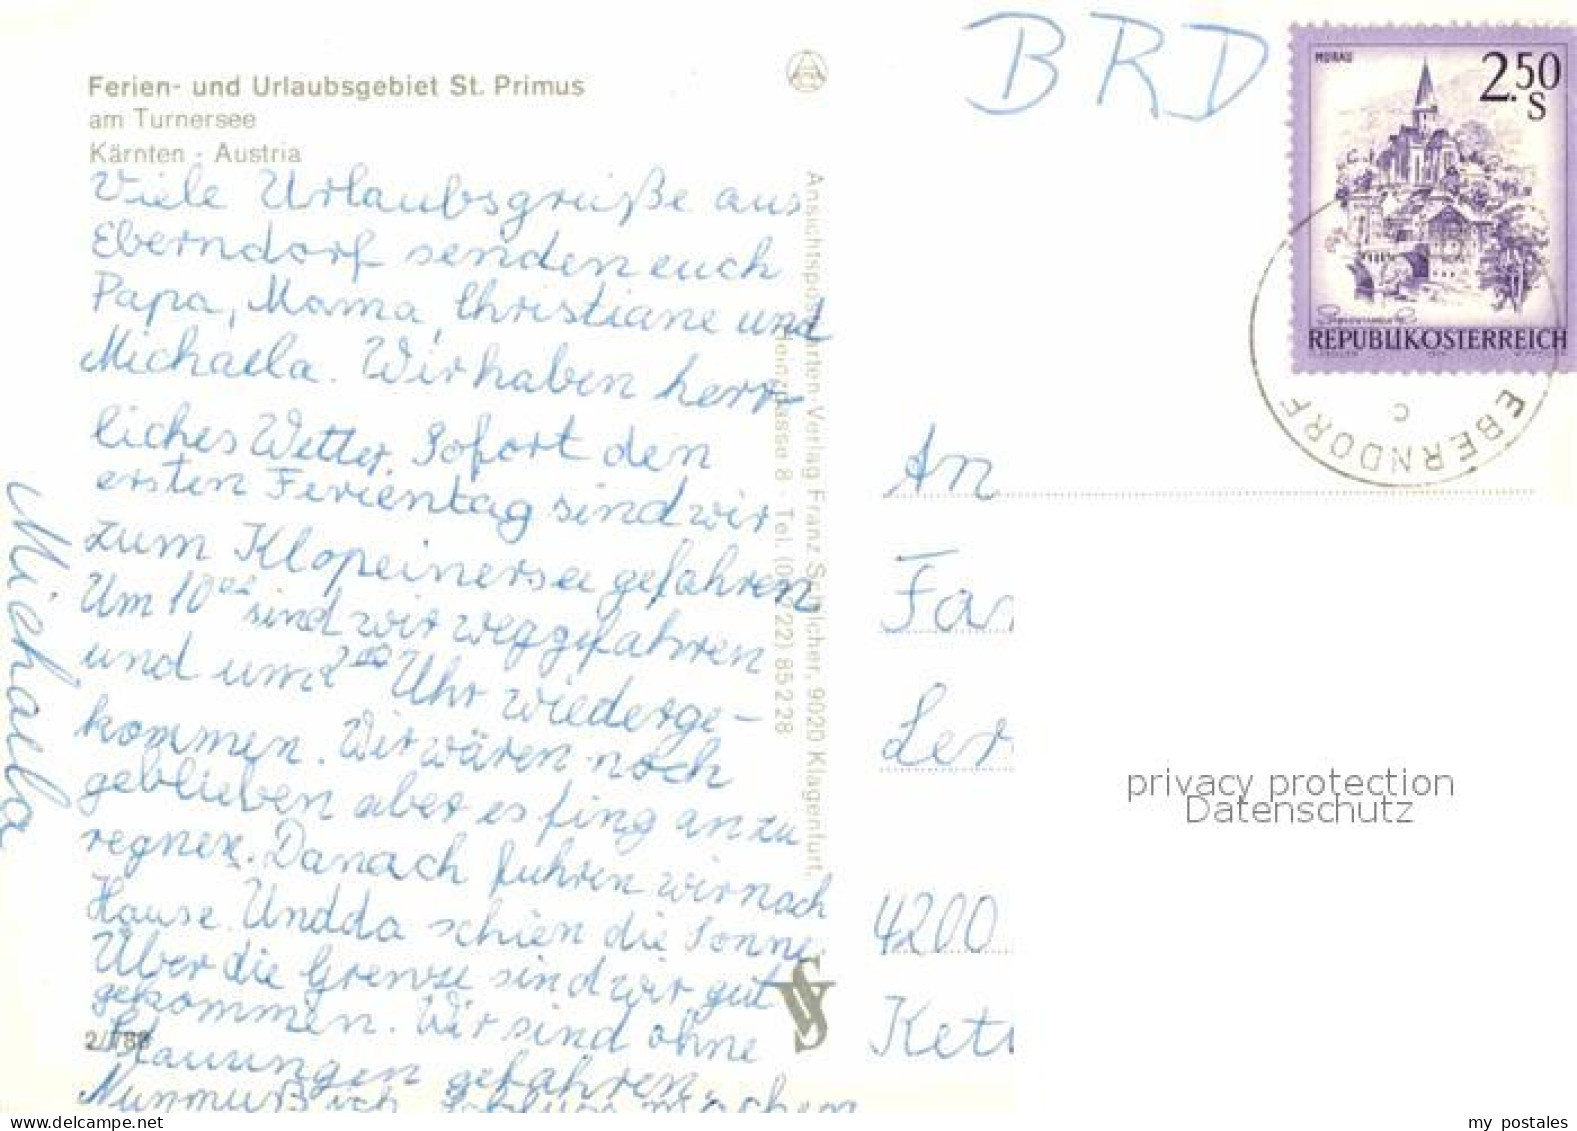 BRD
MURAU
2.50
S
REPUBLIK ÖSTERREICH
EBERNDORF
C
Ferien- und Urlaubsgebiet St. Primus
am Turnersee
Kärnten - Austria
Viele Urlaubsgrüße aus
Eberndorf senden euch
Papa, Mama, Christiane und
Michaela. Wir haben herr-
liches Wetter. Sofort den
ersten Ferientag sind wir
zum Klopeinersee gefahren
Um 10 sind wir weggefahren
und um 2⁰⁰ Uhr wiederge-
kommen. Wir wären noch
geblieben aber es fing an zu
regnen. Danach fuhren wir nach
Hause. Und da schien die Sonne.
Über die Grenze sind wir gut
gekommen. Wir sind ohne
Stauungen gefahren.
Nun muß ich Schluss machen
Michaela
2/788
Ansichtspostkarten-Verlag Franz Schilcher, 9020 Klagenfurt,
gasse 8 - Tel. (0 42 22) 85 2 28
SV
An
Fa
Ler
4200
Ket
privacy protection
Datenschutz
my postales